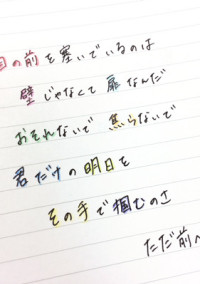 の前を塞いでいるのは
壁じゃなくて扉なんだ
おそれないで焦らないで
君だけの明日を
その手で掴むのさ
ただ前へ